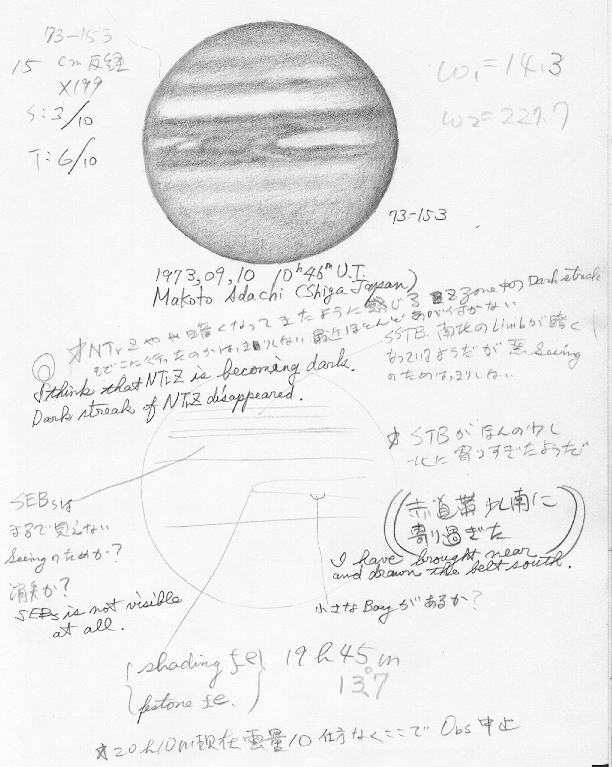 73-153
15 cm反経
×199
S:3/10
T:6/10
ω1=14.3
ω2=229.7
73-153
1973,09,10 10h46m U.T.
Makoto Adachi (Shiga Japan)
NTrZやや暗くなってきたように感じる Zone中のDark streak
I think that NTrZ is becoming dark.
Dark streak of NTrZ disappeared.
SSTB 南北のlimbが暗く
なっているようだが悪seeing
のためはっきりしない
STBがほんの少し
北に寄りすぎたようだ
SEBsは
まるで見えない
Seeingのためか?
消失か?
SEBs is not visible
at all.
赤道帯少し南に
寄り過ぎた
I have brought near
and drawn the belt south.
小さなBayがあるか?
shading fe
festone fe.
19h45m
13.7
20h10m現在雲量10 仕方なくここでObs中止